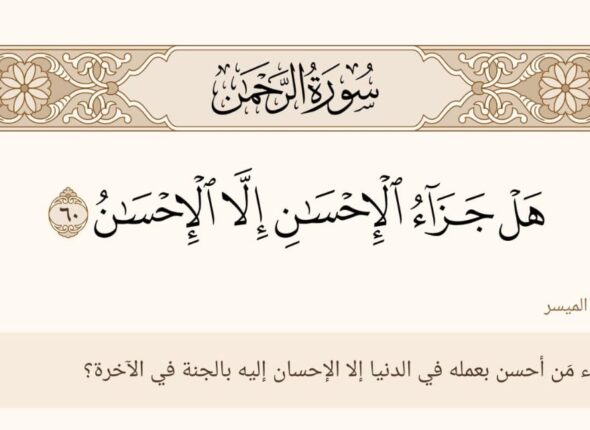 سُورَةُ الرَّحۡمَٰن
هَلۡ جَزَآءُ ٱلۡإِحۡسَٰنِ إِلَّا ٱلۡإِحۡسَٰنُ ٦٠
الميسر
مَن أحسن بعمله في الدنيا إلا الإحسان إليه بالجنة في الآخرة؟